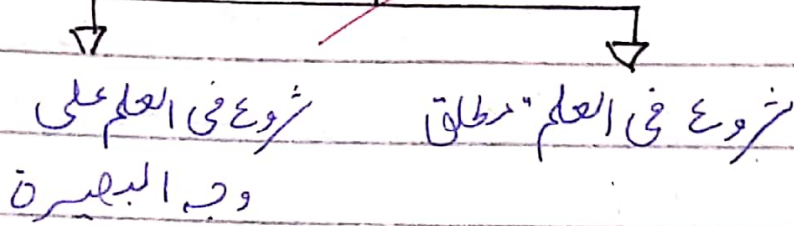 شروع فی العلم "مطلق شروع فی العلم علی
وجہ البصیرة